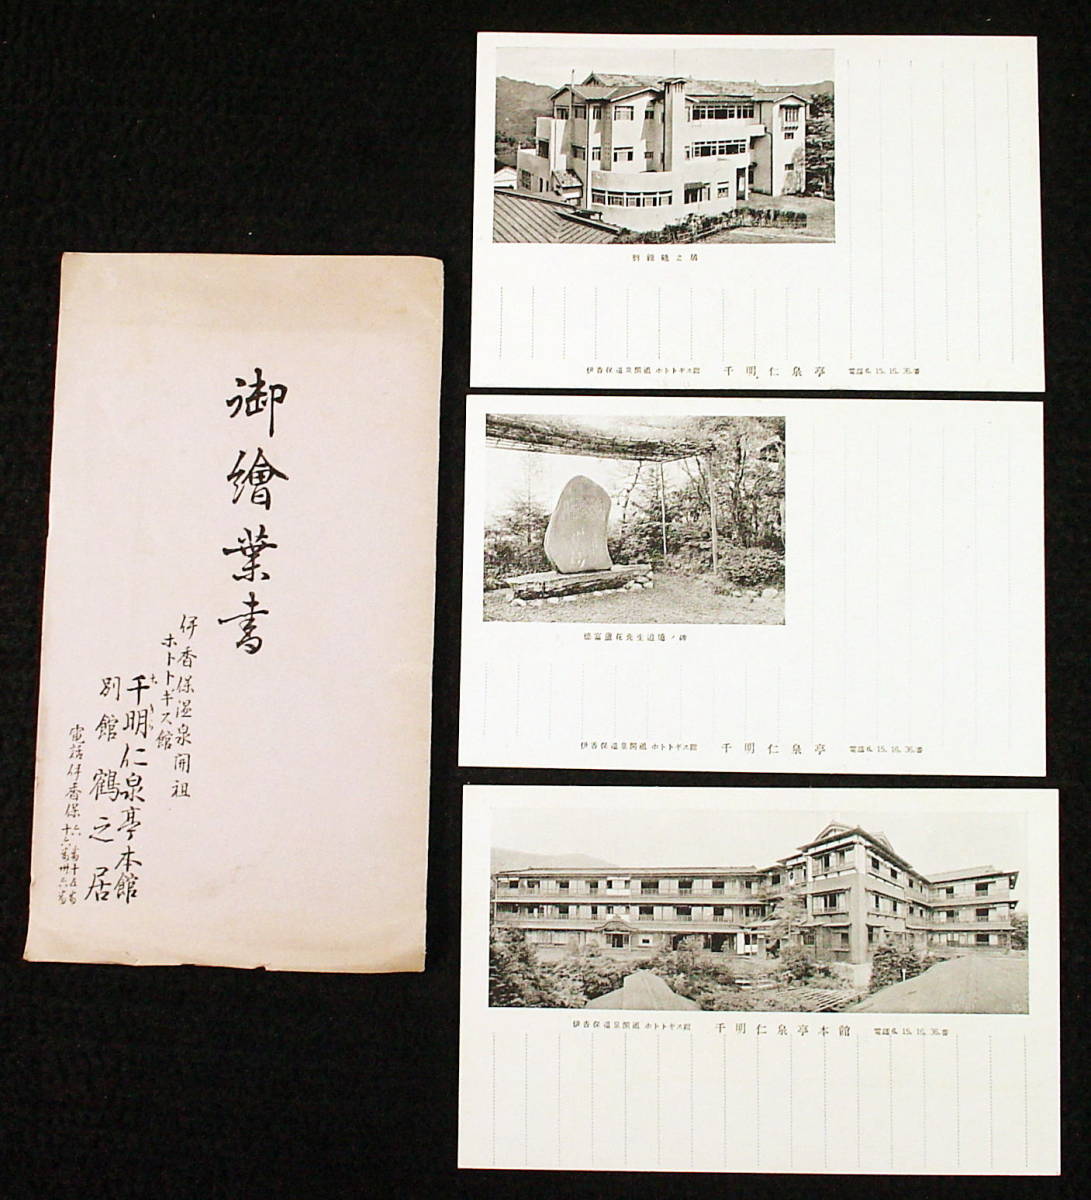 御繪葉書
伊香保温泉開祖
ホトトギス館
千明仁泉亭本館
別館 鶴之居
電話伊香保
別館鶴之居
伊香保温泉開祖 ホトトギス館 千明仁泉亭 電話6. 15. 16. 36.番
徳富蘆花先生追憶ノ碑
伊香保温泉開祖 ホトトギス館 千明仁泉亭 電話6. 15. 16. 36.番
伊香保温泉開祖 ホトトギス館 千明仁泉亭本館 電話6. 15. 16. 36.番